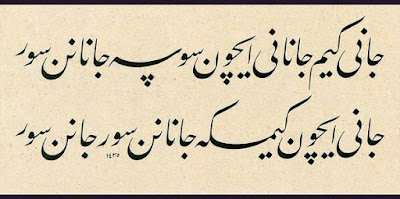 جانی کیم جانانی ایچون سوسه جانانن سور
جانی ایچون کیمکه جانانن سور جانن سور
١٤٣٥